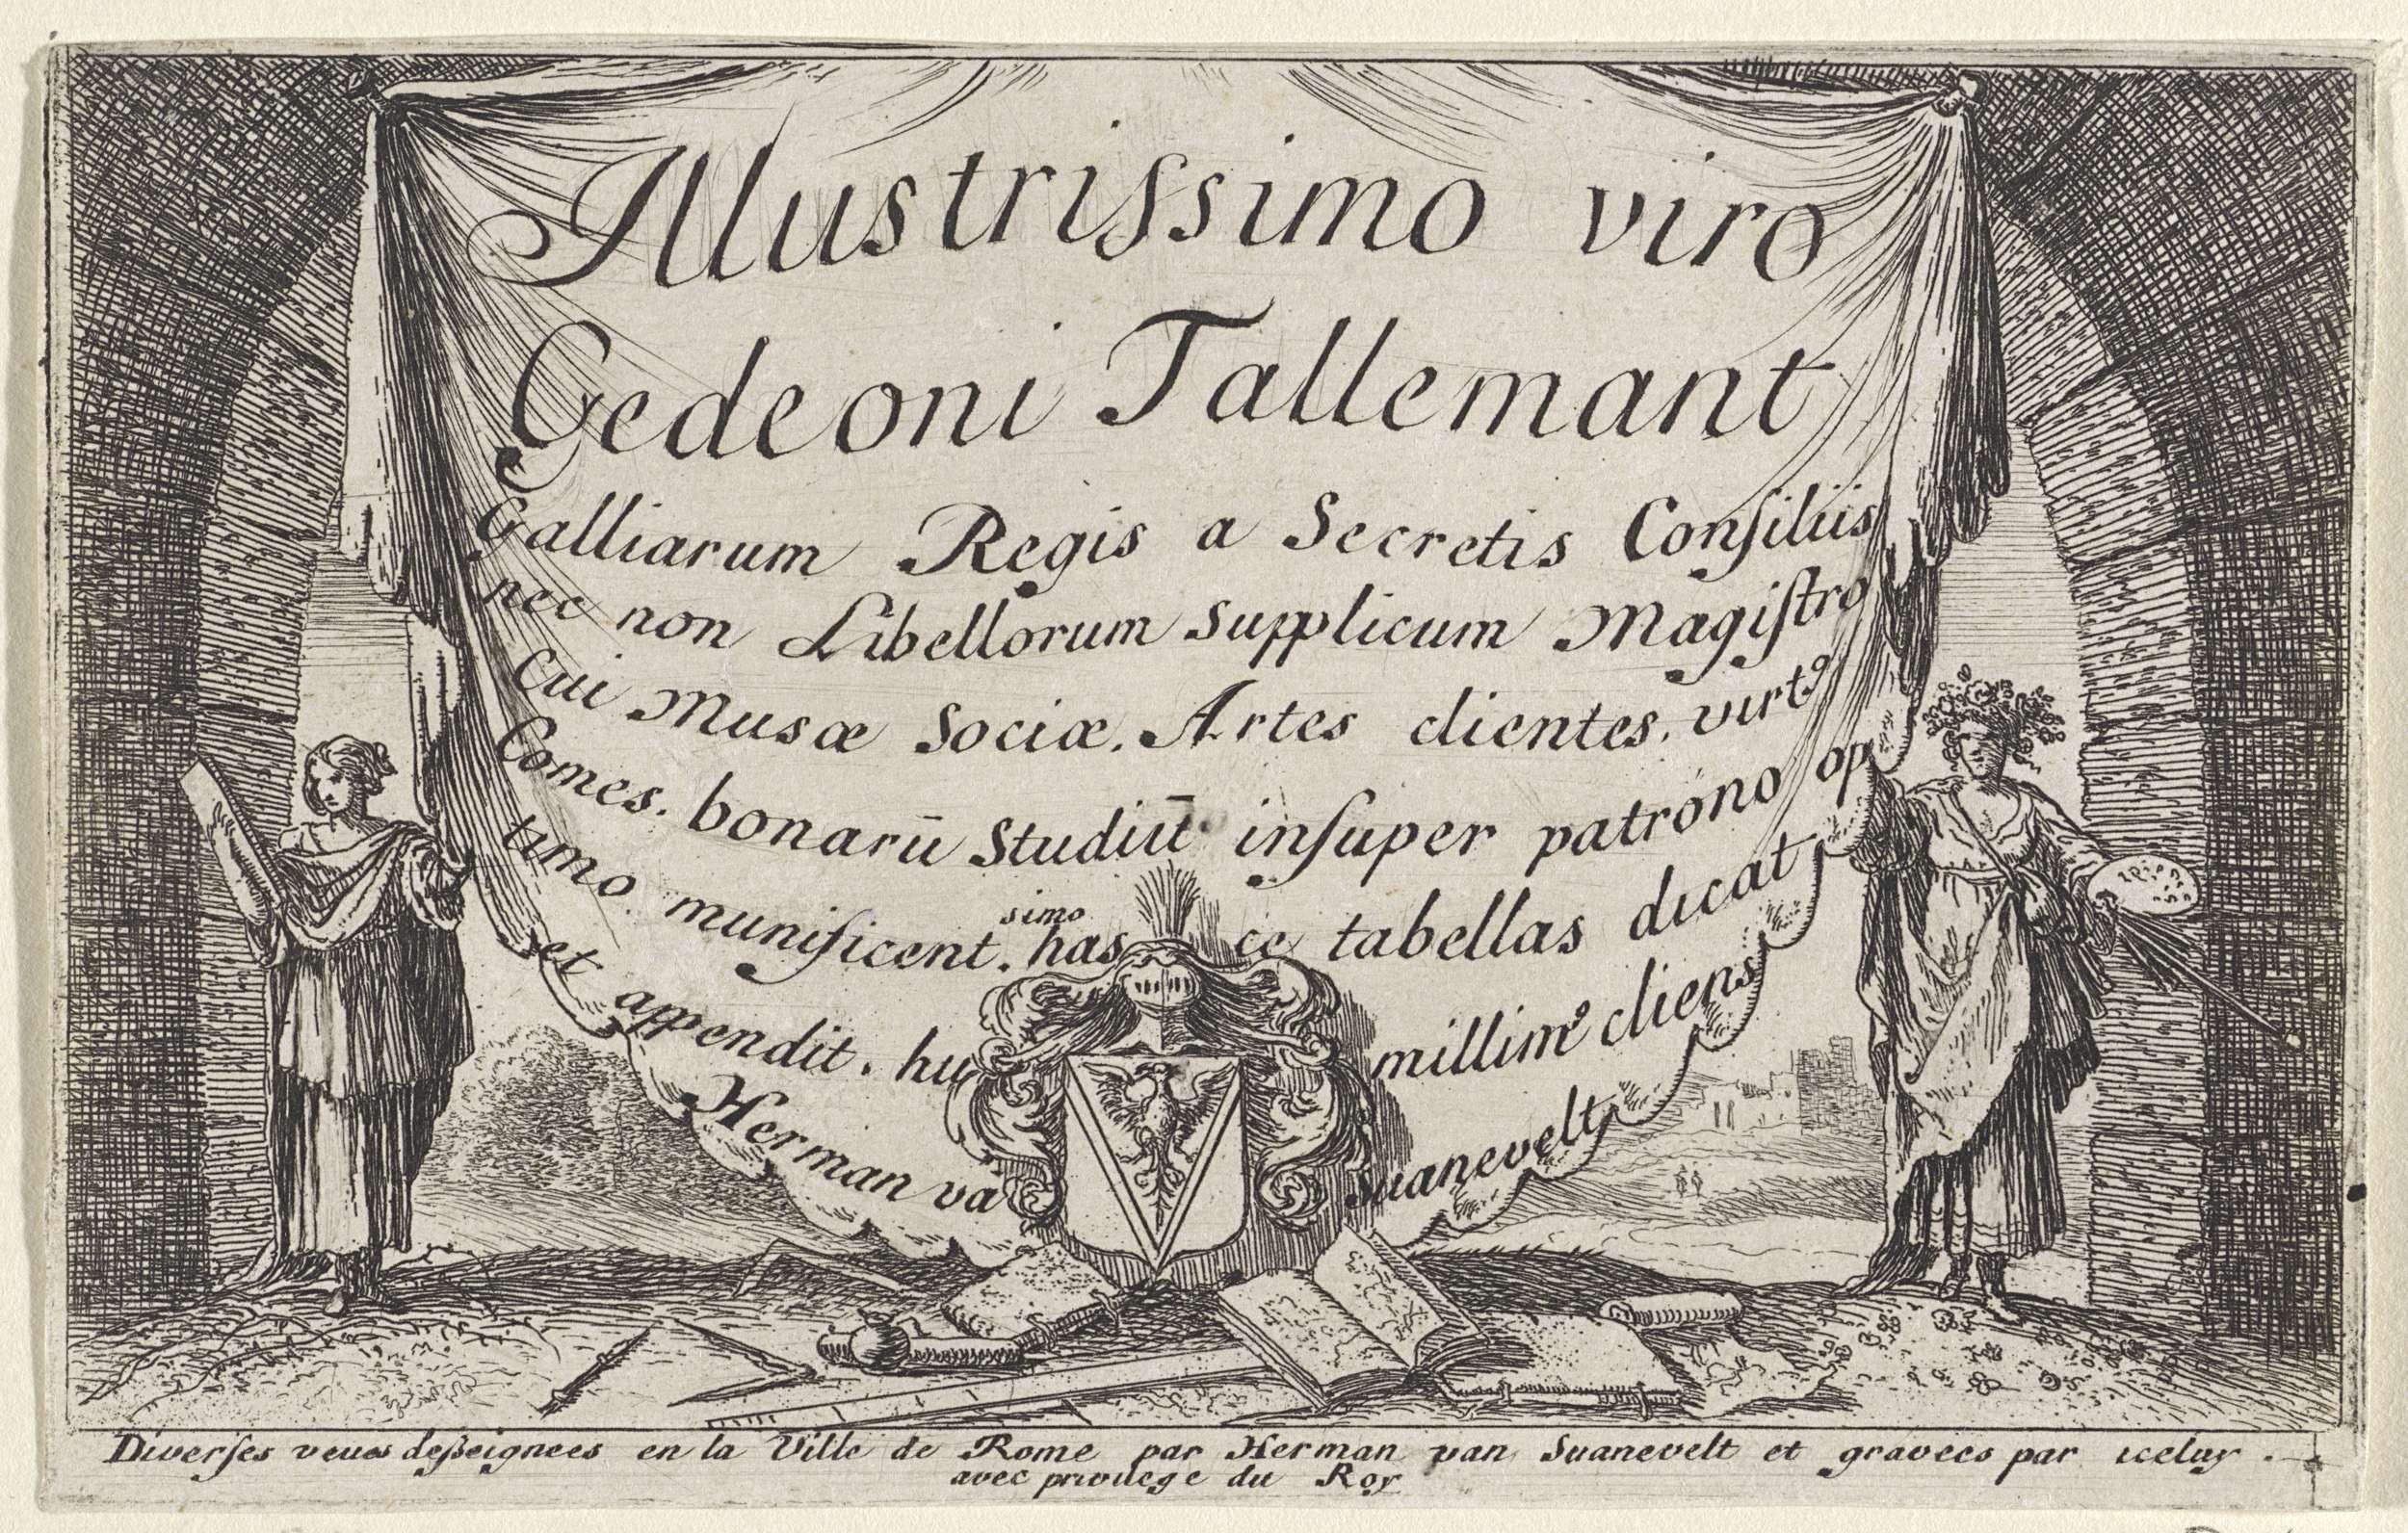 Illustrissimo viro
Gedeoni Tallemant
Galliarum Regis a Secretis Consiliis
nec non Libellorum supplicum Magistro
Cui Musæ Sociæ. Artes clientes. virtꝰ
Comes. bonarū Studiū insuper patrono op
timo munificent.simo hasce tabellas dicat
et appendit. humillimꝰ cliens
Herman va Suanevelt
Diverses veues desseignees en la Ville de Rome par Herman van Suanevelt et gravees par iceluy.
avec privilege du Roy